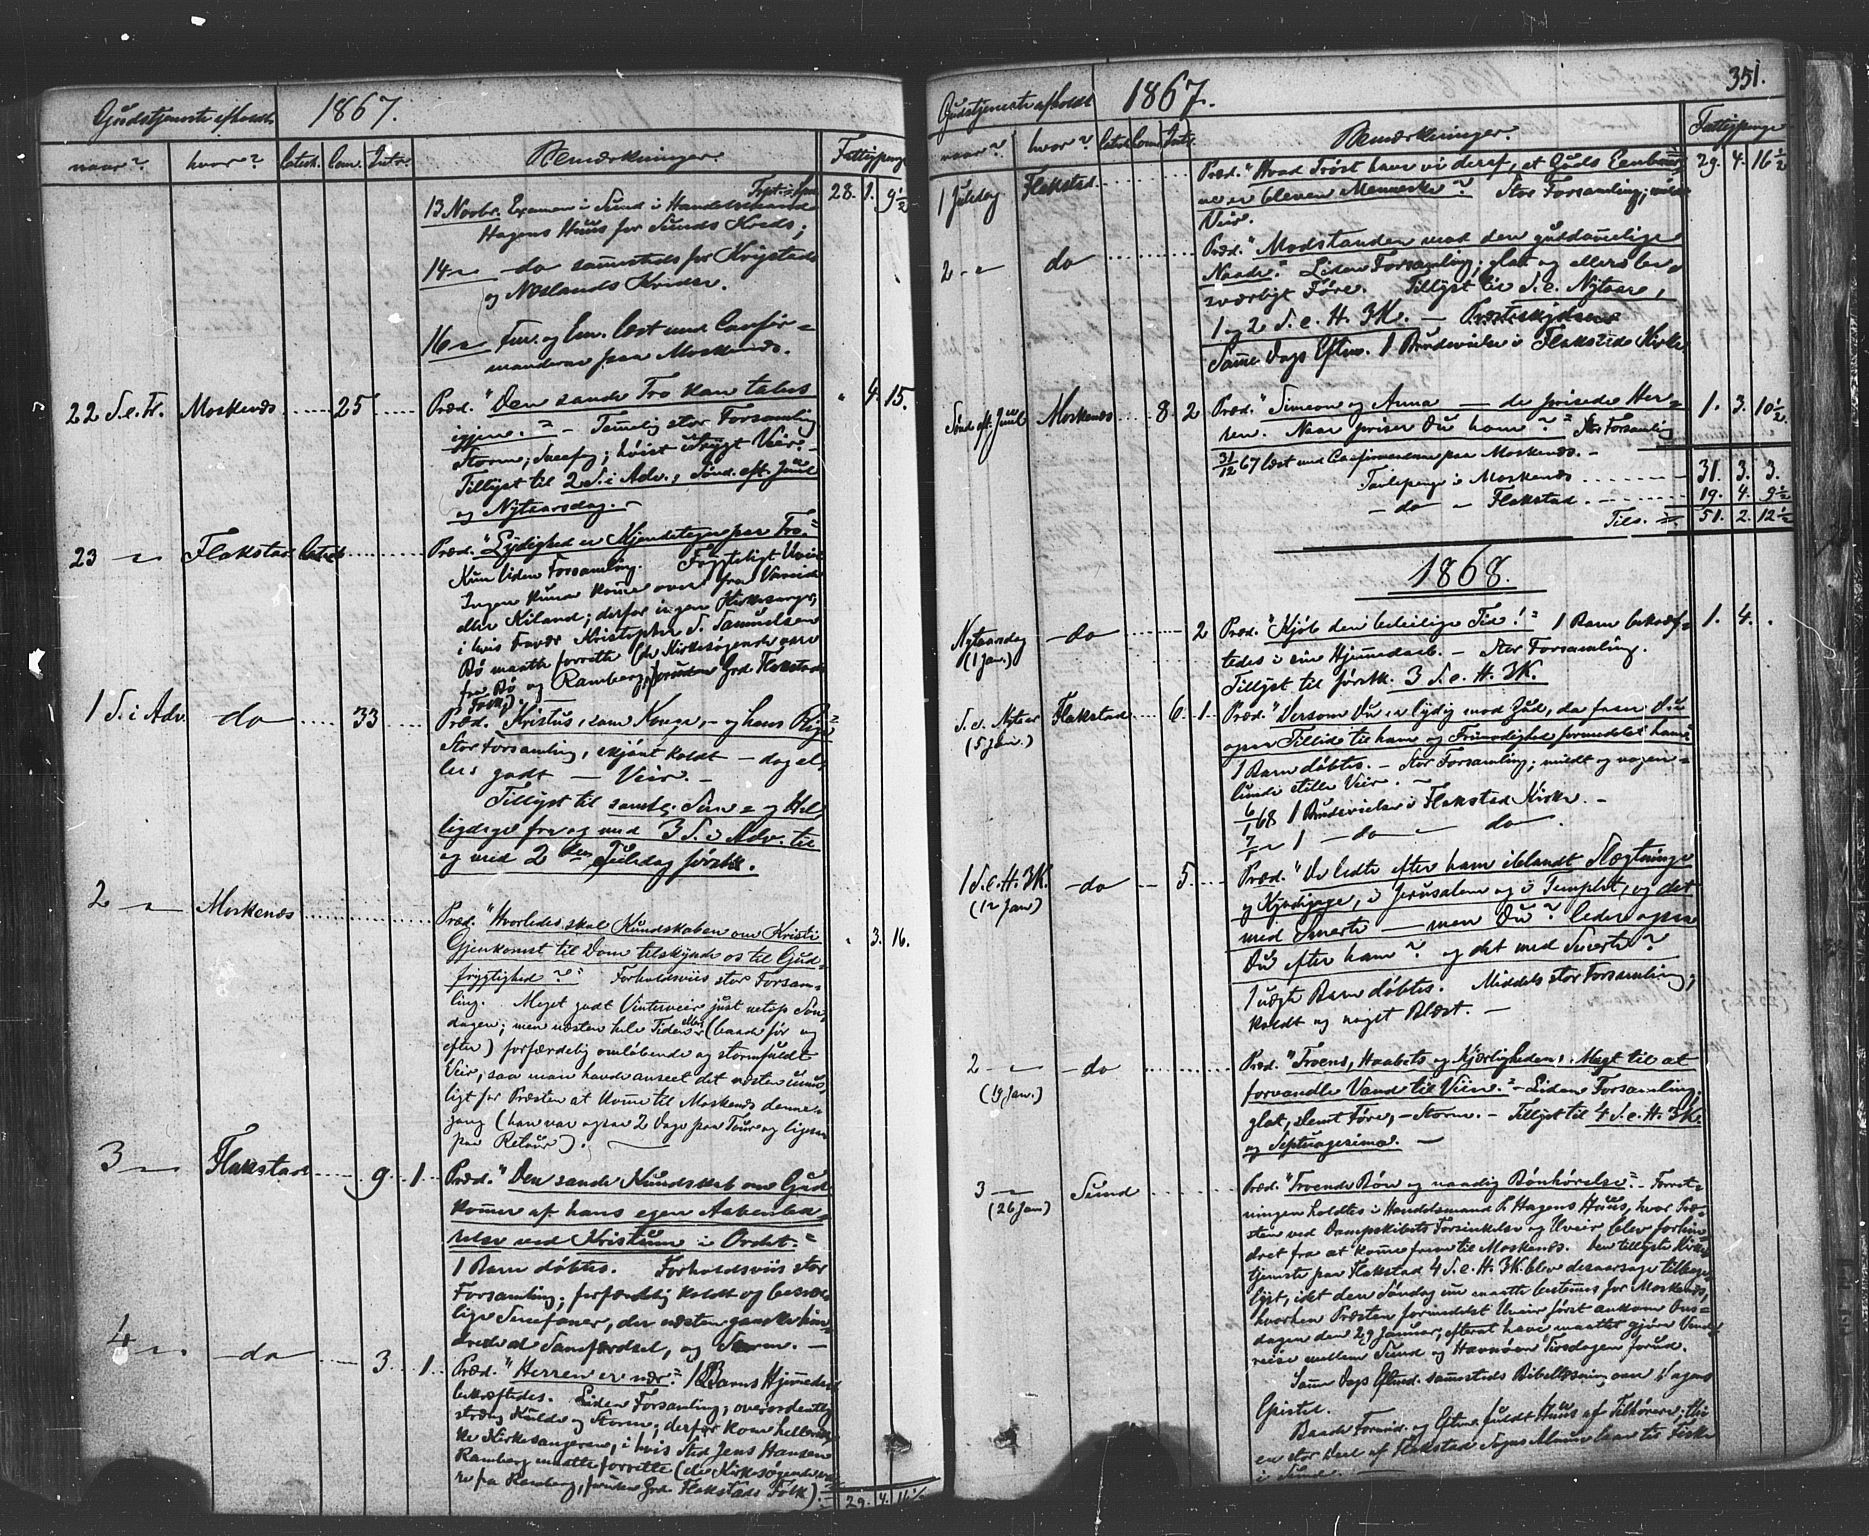 Gudstjeneste afholdt 1867.
naar? hvor? Catech. Com. Intr. Bemærkninger. Fattigpenge
Transp. 28. 1. 9 1/2
13 Novbr. Examen i Sund i Handelsmand
Hagens Huus for Sunds Kreds;
14 – do sammesteds for
og Næslands Kredse.
16 – Fm. og Em. læst med Confir=
manderne paa Moskenæs.
22 S. e. Tr. Moskenæs 25 Præd. "Den sande Tro kan tabes " 4. 15.
igjen." – Temelig stor Forsamling
Storm, Snefog; høist utrygt Veir. –
Tillyst til 2 S. i Adv., Sønd. eft. Juul
og Nytaarsdag. –
23 – Flakstad Catech Præd. "Lydighed er Kjendetegn paa Tro."
Kun liden Forsamling. Frygteligt Uveir
Ingen kunde kome over fra
eller Kiland; derfor ingen Kirkesanger,
i hvis Fravær Kristopher S. Samuelsen
Bø maatte forrette (de Kirkesøgende vare
fra Bø og Ramberg, foruden Grd Flakstads
Folk).
1 S. i Adv. do 33 Præd. "Kristus, som Konge, – og hans Rige"
Stor Forsamling, skjønt koldt – dog el=
lers godt – Veir. –
Tillyst til samtl. Søn= og Hel=
ligdage fra og med 3 S. i Adv. til
og med 2den Juledag førstk.
2 – Moskenæs Præd. "Hvorledes skal Kundskaben om Kristi " 3. 16.
Gjenkomst til Dom tilskynde os til Gud=
frygtighed?" Forholdsviis stor Forsam=
ling. Meget godt Vinterveir just netop Søn=
dagen; men næsten hele Tiden ellers (baade før og
efter) forfærdelig omløbende og stormfuldt
Veir, saa man havde anseet det næsten umu=
ligt for Præsten at kome til Moskenæs denne=
gang (han var ogsaa 2 Dage paa Tour og ligesaa
paa Retour). –
3 – Flakstad 9. 1. Præd. "Den sande Kundskab om Gud
komer af hans egen Aabenba=
relse ved Kristum i Ordet."
1 Barn døbtes. Forholdsviis stor
Forsamling; forfærdelig koldt og besvær=
lige Snefoner, der næsten ganske hin=
drede al Samfærdsel, og Storm. –
4 – do 3. 1. Præd. "Herren er nær." 1 Barns Hjemedaab
bekræftedes. Liden Forsamling; overordentlig
stræng Kulde og Storm; derfor kom heller ik=
ke Kirkesangeren, i hvis Sted Jens Hansen
Ramberg maatte forrette (de Kirkesøgende va=
re fra Ramberg, foruden Grd. Flakstads Folk).
29. 4. 16 1/2
351.
Gudstjeneste afholdt 1867.
naar? hvor? Catech. Com. Intr. Bemærkninger. Fattigpenge
1 Juledag Flakstad Præd. "Hvad Trøst have vi deraf, at Guds Eenbaar= 29. 4. 16 1/2
ne er bleven Menneske?" Stor Forsamling; mildt
Veir.
2 – do Præd. "Modstanden mod den guddomelige
Naade." Liden Forsamling; glat og ellers be=
sværligt Føre. Tillyst til S. e. Nytaar,
1 og 2 S. e. H. 3K. –
Same Dags Eftm. 1 Brudevielse i Flakstads Kirke
Sønd. eft. Juul Moskenæs 8. 2 Præd. "Simeon og Anna – de prisede Her= 1. 3. 10 1/2
ren. Naar priser Du ham?" Stor Forsamling
31/12 67 læst med Confirmanderne paa Moskenæs. –
Tavlepenge i Moskenæs 31. 3. 3.
– do – Flakstad 19. 4. 9 1/2
Tils. = 51. 2. 12 1/2
1868.
Nytaarsdag do 2 Præd. "Kjøb den beleilige Tid!" 1 Barn bekræf= 1. 4. .
(1 Jan.) tedes i sin Hjemedaab. – Stor Forsamling.
Tillyst til førstk. 3 S. e. H. 3K.
S. e. Nytaar Flakstad 6. 1. Præd. "Dersom Du er lydig mod Gud, da faar Du
(5 Jan.) ogsaa Tillid til ham og Frimodighed formedelst ham"
1 Barn døbtes. – Stor Forsamling; mildt og nogen=
lunde stille Veir. –
6/1 68 1 Brudevielse i Flakstad Kirke. –
7/1 – 1 – do – do.
1 S. e. H. 3K. do 5. Præd. "De ledte efter ham iblandt Slægtninge
(12 Jan) og Kjendinge, i Jerusalem og i Templet, og det
med Smerte – men Du? leder ogsaa
Du efter ham? og det med Smerte?"
1 uægte Barn døbtes. Middels stor Forsamling;
koldt og noget Blæst. –
2 – do Præd. "Troens, Haabets og Kjærlighedens Magt til at
(19 Jan.) forvandle Vand til Viin." – Liden Forsamling,
glat, slemt Føre, – Storm. – Tillyst til 4 S. e. H. 3K.
og Septuagesima. –
3 – Sund Præd. "Troende Bøn og naadig Bønhørelse" – Forret=
(26 Jan) ningen holdtes i Handelsmand Hagens Huus, hvor Præ=
sten ved Dampskibets Forsinkelse og Uveir blev forhin=
dret fra at kome frem til Moskenæs. Den tillyste Kirke=
tjeneste paa Flakstad 4 S. e. H. 3K. blev desaarsage tilbage=
lyst, idet den Søndag nu maatte bestemes for Moskenæs,
hvorhen Præsten formedelst Uveir først ankom Ons=
dagen den 29 Januar, efterat have maattet gjøre Vende=
reise mellem Sund og Havnøen Tirsdagen forud.
Same Dags Eftmd. sammesteds Bibellæsning over Dagens
Epistel.
Baade Formd. og Eftm. fuldt Huus af Tilhørere; thi
en stor Deel af Flakstad Sogns Almue laae til Fiske
i Sund. –